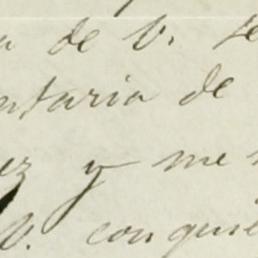 a de V. se
ntaria de
ez y me
V. con quie